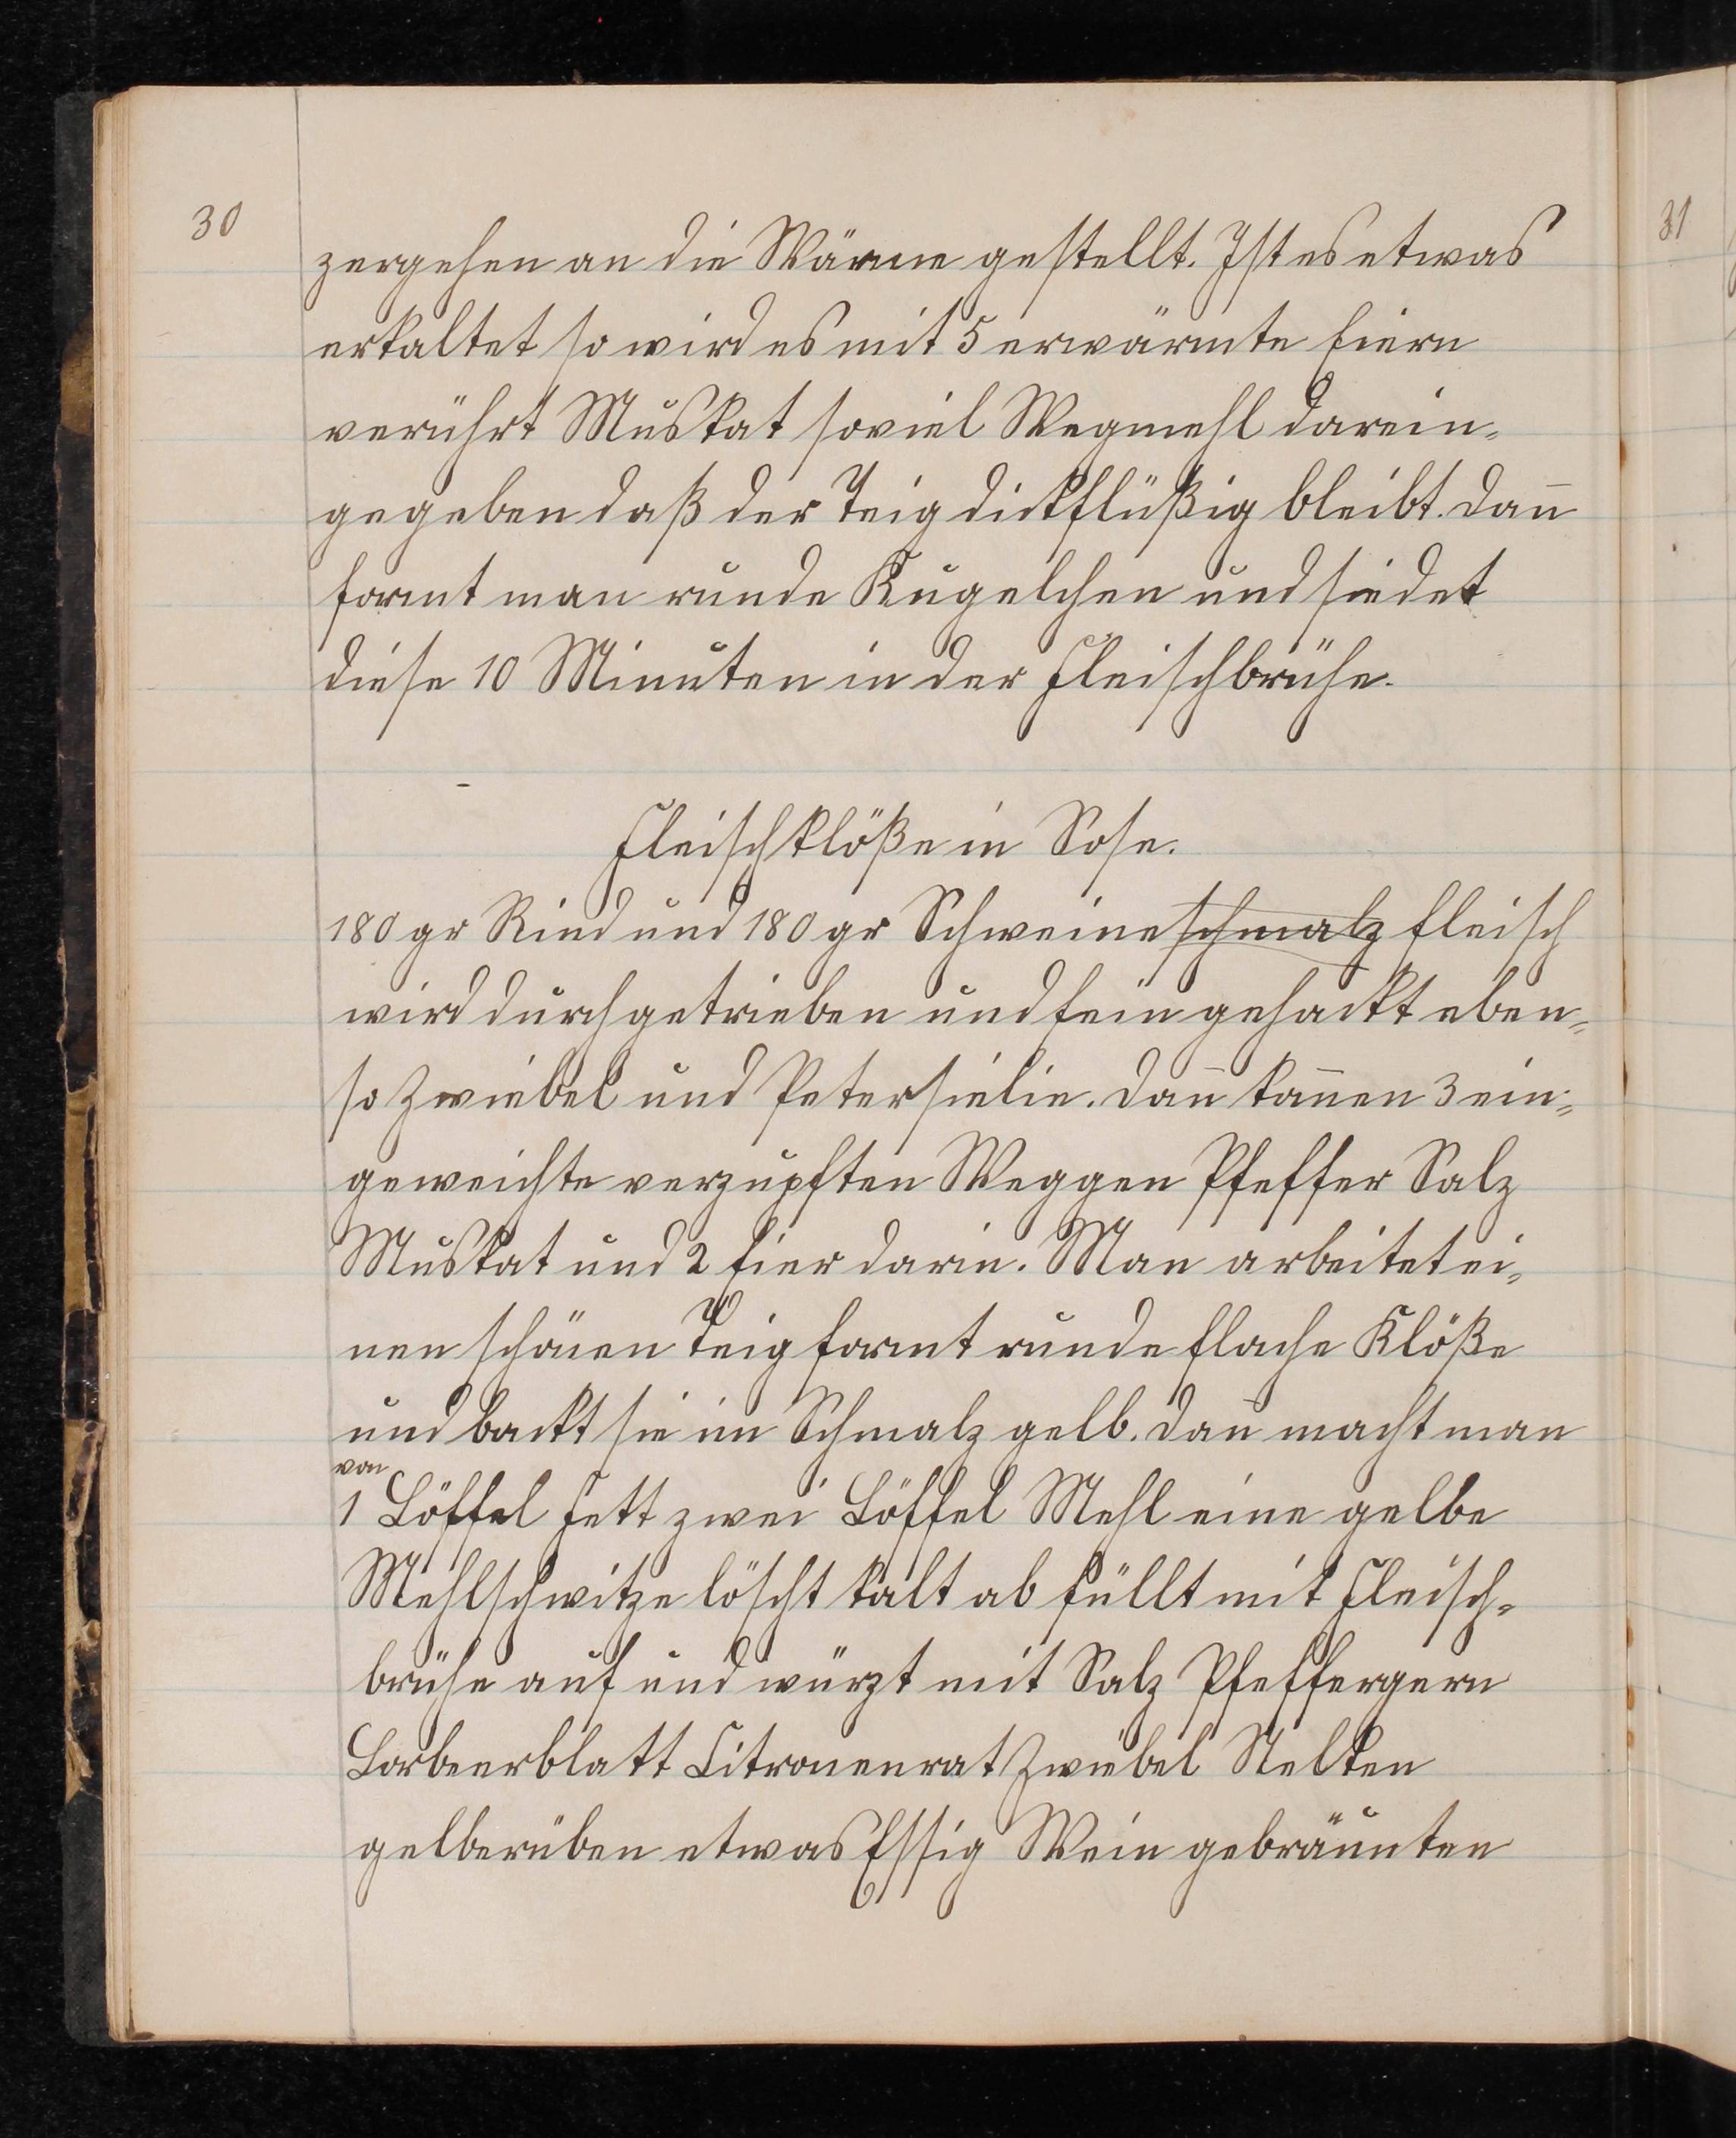 30
zergehen an die Wärme gestellt. Ist es etwas
erkaltet so wird es mit 5 erwärmte Eiern
verührt Muskat soviel Wegmehl darein-
gegeben daß der Teig dickflüßig bleibt. Dan̄
formt man runde Kugelchen und siedet
diese 10 Minuten in der Fleischbrühe.
Fleischklöße in Sose.
180 gr Rind und 180 gr Schweineschmalz fleisch
wird durchgetrieben und fein gehackt eben-
so Zwiebel und Petersielie. Dan̄ kan̄en 3 ein-
geweichte verzupften Weggen Pfeffer Salz
Muskat und 2 Eier darin. Man arbeitet ei-
nen schönen Teig formt runde flache Klöße
und backt sie im Schmalz gelb. Dan̄ macht man
von
1 Löffel Fett zwei Löffel Mehl eine gelbe
Mehlschwitze löscht kalt ab füllt mit Fleisch-
brühe auf und würzt mit Salz Pfeffergern
Lorbeerblatt Citronenrat Zwiebel Nelken
gelberüben etwas Essig Wein gebräunten
31